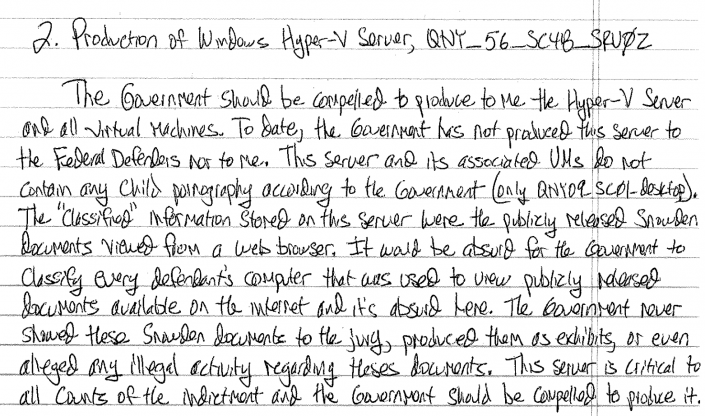 2. Production of Windows Hyper-V Server, QNY_56_SC4B_SRV02
The Government should be compelled to produce to me the Hyper-V Server
and all virtual machines. To date, the Government has not produced this server to
the Federal Defenders nor to me. This server and its associated VMs do not
contain any Child pornography according to the Government (only QNY09_SC01-Desktop).
The "Classified" information stored on this server were the publicly released Snowden
documents viewed from a web browser. It would be absurd for the Government to
Classify every defendant's computer that was used to view publicly released
documents available on the internet and it's absurd here. The Government never
showed these Snowden documents to the jury, produced them as exhibits, or even
alleged any illegal activity regarding theses documents. This server is critical to
all Counts of the indictment and the Government should be compelled to produce it.